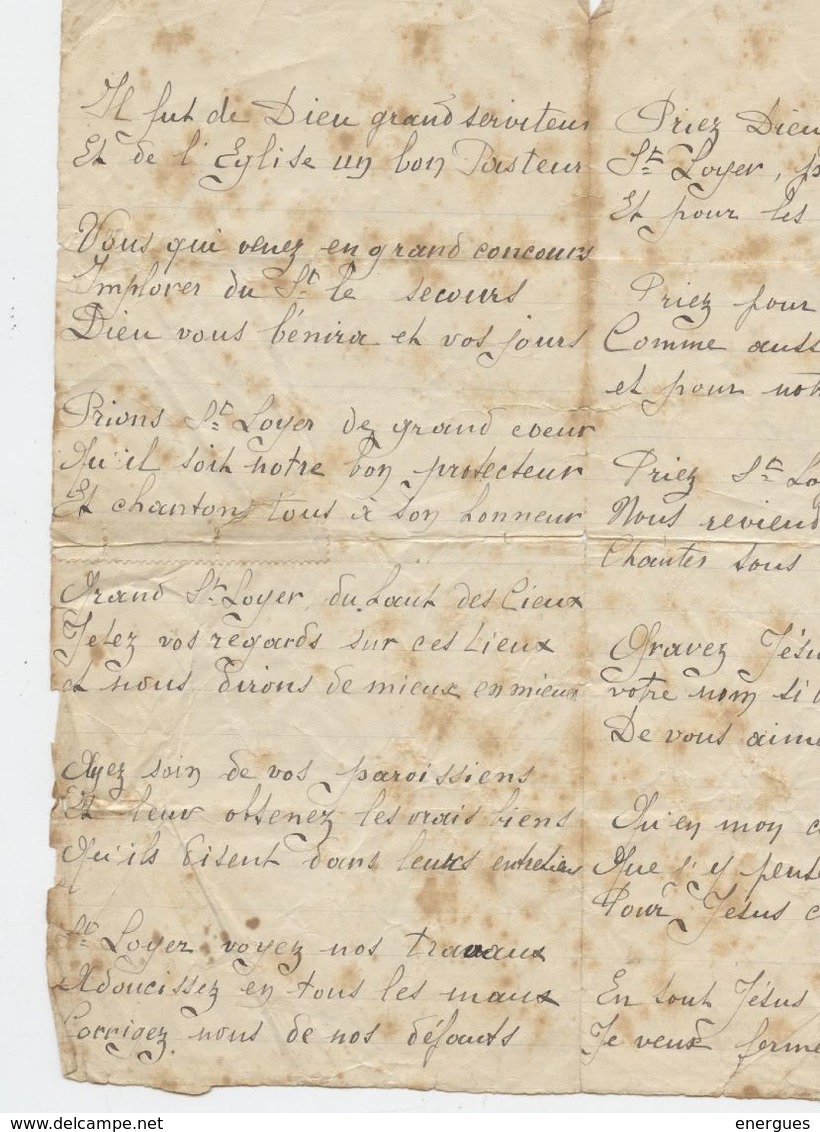 Il fut de Dieu grand serviteur
Et de l'Eglise un bon Pasteur
Vous qui venez en grand concours
Implorer du St le secours
Dieu vous bénira et vos jours
Prions St Loyer de grand coeur
Qu'il soit notre bon protecteur
Et chantons tous à son honneur
Grand St Loyer, du haut des Cieux
Jetez vos regards sur ces Lieux
et nous dirons de mieux en mieux
Ayez soin de vos paroissiens
Et leur obtenez les vrais biens
Qu'ils disent dans leurs entretiens
St Loyer voyez nos travaux
Adoucissez en tous les maux
Corrigez nous de nos défauts
Priez Dieu
St Loyer, p
Et pour les
Priez pour
Comme auss
et pour not
Priez St Lo
Nous reviend
Chanter sous
Gravez Jésu
votre nom si
De vous aime
Qu'en mon c
Que j'y pens
Pour Jésus c
En tout Jésus
Je veux ferme
delcampe.net
energues